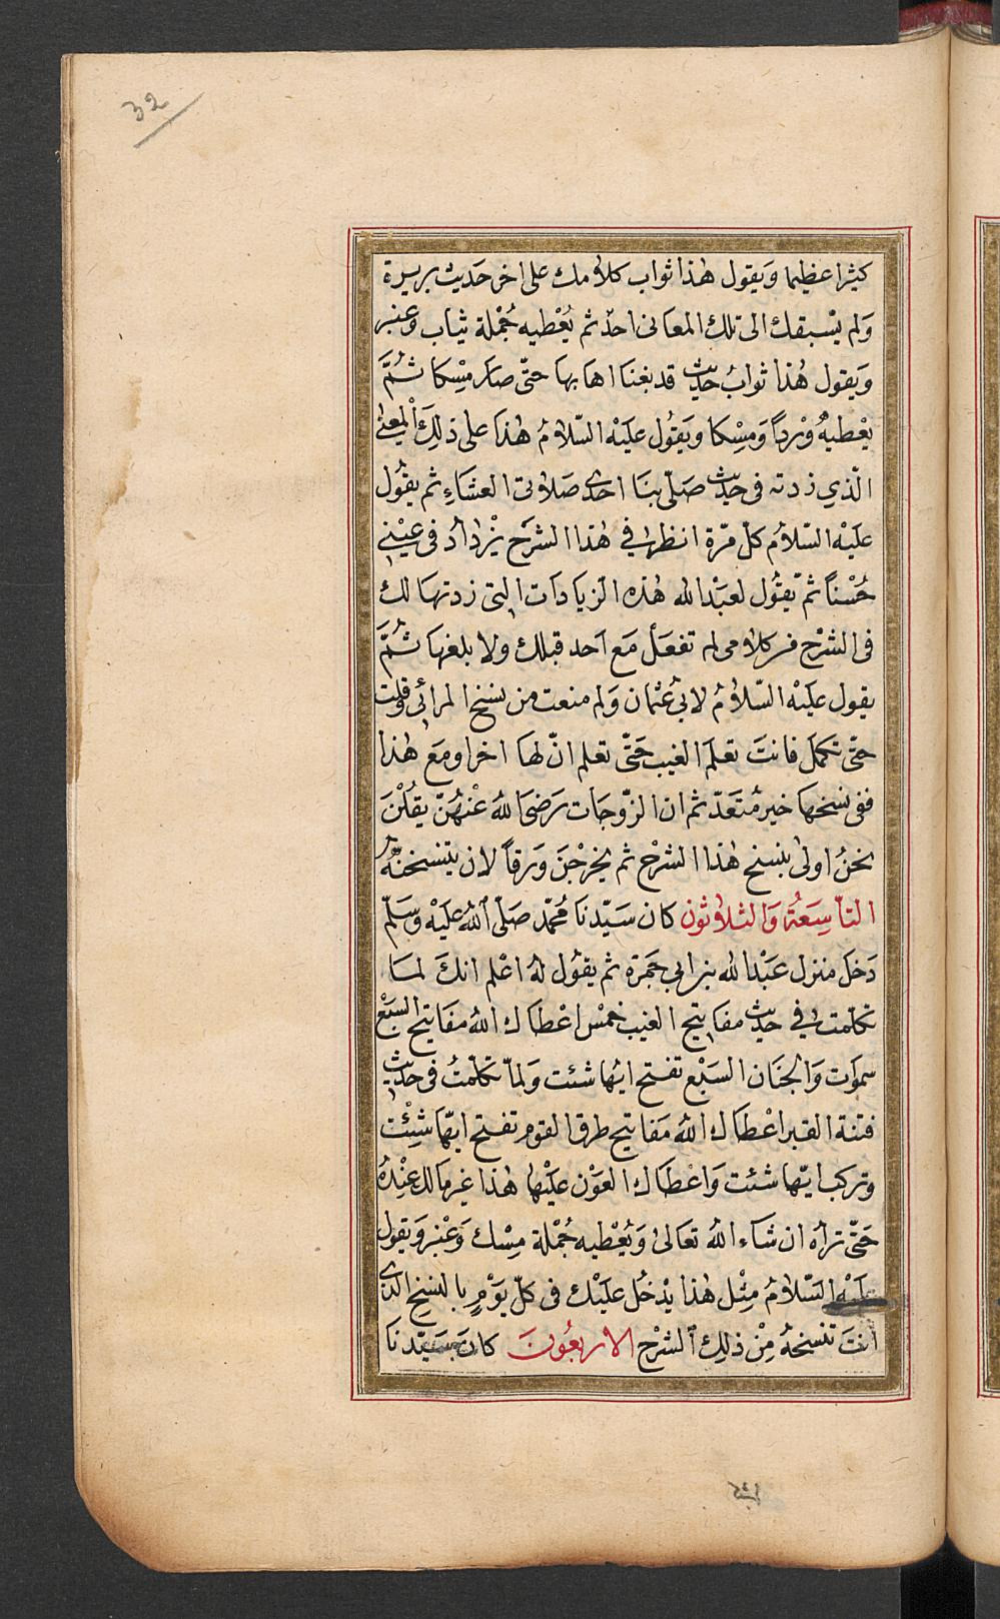 32
كثيرا عظيما وَيقول هٰذا ثواب كلامك على اخر حَديث بريرة
وَلم يسْبقك الى تلك المعانى احدٌ ثم يُعْطيه جُمْلة ثياب وعنبر
وَيقول هٰذا ثوابُ حديث قد بغنا اهابها حتّى صار مِسْكا ثُمَّ
يعْطيهُ وَرداً وَمِسْكا ويَقُول عليَه السّلامُ هٰذا على ذلِكَ المعنى
الّذي زدته فى حديث صَلّى بنَا احدى صَلاتى العشاءِ ثم يقُول
عليَه السّلامُ كلّ مرّة انظر فى هٰذا الشرَح يَزْدادُ فى عيْنى
حُسْناً ثم يقُول لعبْد الله هٰذه الزيادَات التى زدتهَا لك
فى الشرْح من كلامى لم تفعَل مَع اَحد قبلك ولا بلغهَا ثُمَّ
يقول عليَه السّلامُ لابى عُثمان وَلم منعت من نسخ المرائى وقلت
حتّى تكمل فانتَ تعلم الغيب حَتّى تعلم انّ لهَا اخرا ومَع هٰذا
ففى نسخهَا خير مُتعَدّ ثم ان الزّوجَات رَضىَ اللهُ عَنْهُنّ يقُلْنَ
نحنُ اولى بنسخ هٰذا الشرْح ثم يخرجْنَ وَرقاً لان ينسخنَهُ
التاسِعَةُ وَالثلاثون كان سَيّدنا مُحمّد صَلّى اللهُ عليَه وَسَلّم
دَخَل منزل عبْد الله بن ابى جَمرَة ثم يقُول لهُ اعْلم انكَ لما
تكلمت فى حديث مفاتيح الغيب خمسْ اعْطاك اللهُ مفاتيح السبْع
سموَات وَالجنَان السَبْع تفتح ايّها شئت وَلمّا تكلّمتُ فى حديث
فتنة القبر اعْطاك اللهُ مَفاتيح طرق القوم تفتح ايّهَا شِئْت
وتركب ايّهَا شئت وَاعْطاك العَوْن عليْها هٰذا غير مالك عنْدهُ
حَتّى تراه ان شاء اللهُ تعالىٰ وَيُعْطيه جُمْلة مِسْك وَعْنبر وَيقول
عليَه السّلامُ مِثْل هٰذا يدْخُل عليْك فى كلّ يوْمٍ بالنسخ الذى
انتَ تنسخهُ مِنْ ذلِك الشرْح الاربعُونَ كانَ سَيّدنا